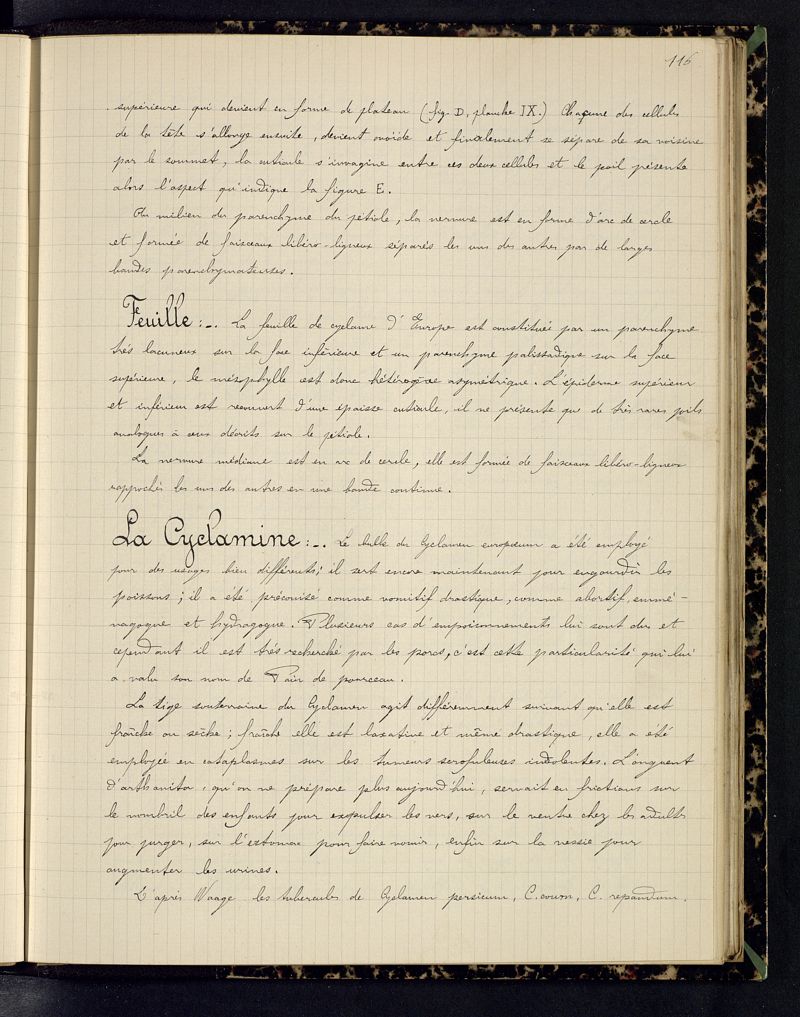 116
supérieure qui devient en forme de plateau (fig. D, planche IX.) Chacune des cellules
de la tête s'allonge ensuite, devient ovoïde et finalement se sépare de sa voisine
par le sommet, la cuticule s'invagine entre ces deux cellules et le poil présente
alors l'aspect qu'indique la figure E.
Au milieu du parenchyme du pétiole, la nervure est en forme d'arc de cercle
et formée de faisceaux libéro-ligneux séparés les uns des autres par de larges
bandes parenchymateuses.
Feuille :_. La feuille de cyclame d'Europe est constituée par un parenchyme
très lacuneux sur la face inférieure et un parenchyme palissadique sur la face
supérieure, le mésophylle est donc hétérogène asymétrique. L'épiderme supérieur
et inférieur est recouvert d'une épaisse cuticule, il ne présente que de très rares poils
analogues à ceux décrits sur le pétiole.
La nervure médiane est en arc de cercle, elle est formée de faisceaux libéro-ligneux
rapprochés les uns des autres en une bande continue.
La Cyclamine :_. Le bulbe du Cyclamen europœum a été employé
pour des usages bien différents; il sert encore maintenant pour engourdir les
poissons; il a été préconisé comme vomitif drastique, comme abortif, emmé-
nagogue et hydragogue. Plusieurs cas d'empoisonnements lui sont dus et
cependant il est très recherché par les porcs, c'est cette particularité qui lui
a valu son nom de Pain de pourceau.
La tige souterraine du Cyclamen agit différemment suivant qu'elle est
fraîche ou sèche; fraîche elle est laxative et même drastique, elle a été
employée en cataplasmes sur les tumeurs scrofuleuses indolentes. L'onguent
d'arthanita, qu'on ne prépare plus aujourd'hui, servait en frictions sur
le nombril des enfants pour expulser les vers, sur le ventre chez les adultes
pour purger, sur l'estomac pour faire vomir, enfin sur la vessie pour
augmenter les urines.
D'après Waage les tubercules de Cyclamen persicum, C. coum, C. repandum,